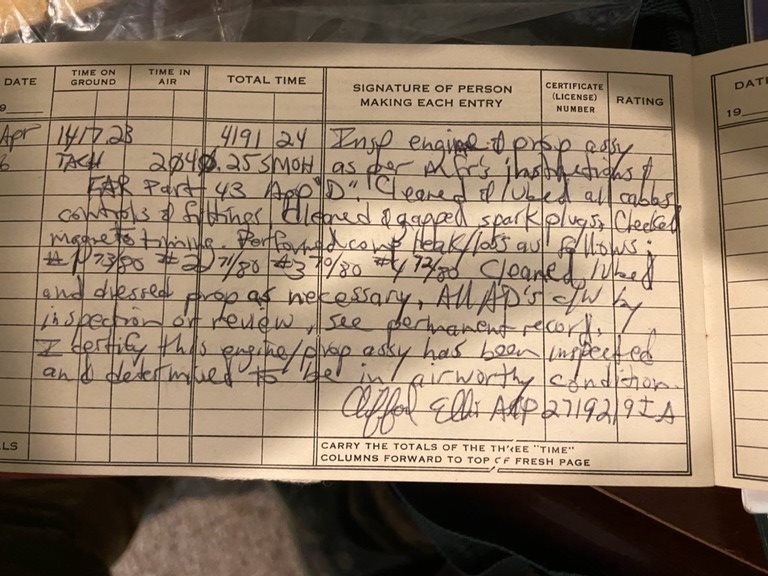 DATE TIME ON GROUND TIME IN AIR TOTAL TIME SIGNATURE OF PERSON MAKING EACH ENTRY CERTIFICATE (LICENSE) NUMBER RATING
9
Apr 1417.23 4191 24 Insp engine & prop assy
TACH 2040.25 SMOH as per Mfr's instructions &
FAR Part 43 App "D". Cleaned & lubed all
controls & fittings Cleaned & gapped spark plugs, Checked
magneto timing. Performed comp leak/loss as follows:
#1 73/80 #2 71/80 #3 70/80 #4 72/80 Cleaned lubed
and dressed prop as necessary, All AD's c/w by
inspection or review, see permanent record.
I certify this engine/prop assy has been inspected
and determined to be in airworthy condition.
Clifford Ellis A&P 2719219 IA
LS
CARRY THE TOTALS OF THE THREE "TIME"
COLUMNS FORWARD TO TOP OF FRESH PAGE
DAT
19